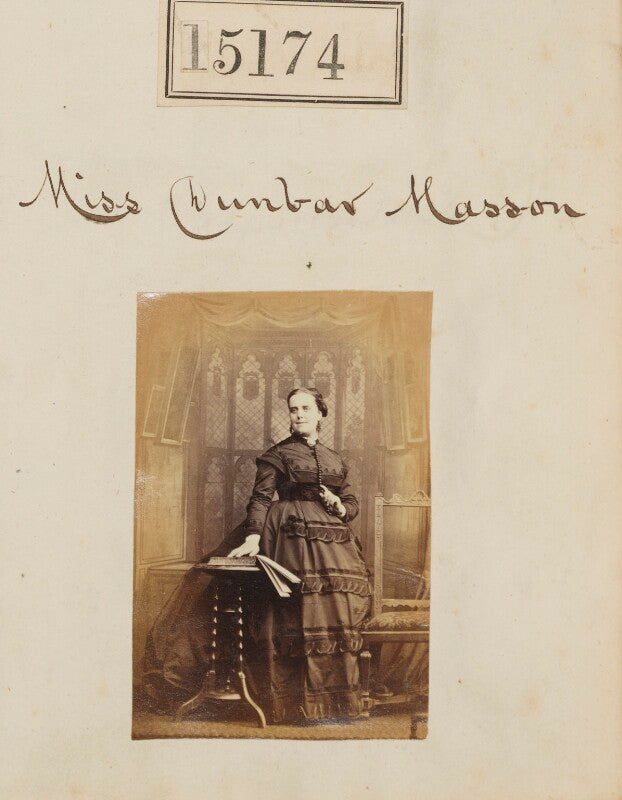 15174
Miss Dunbar Masson